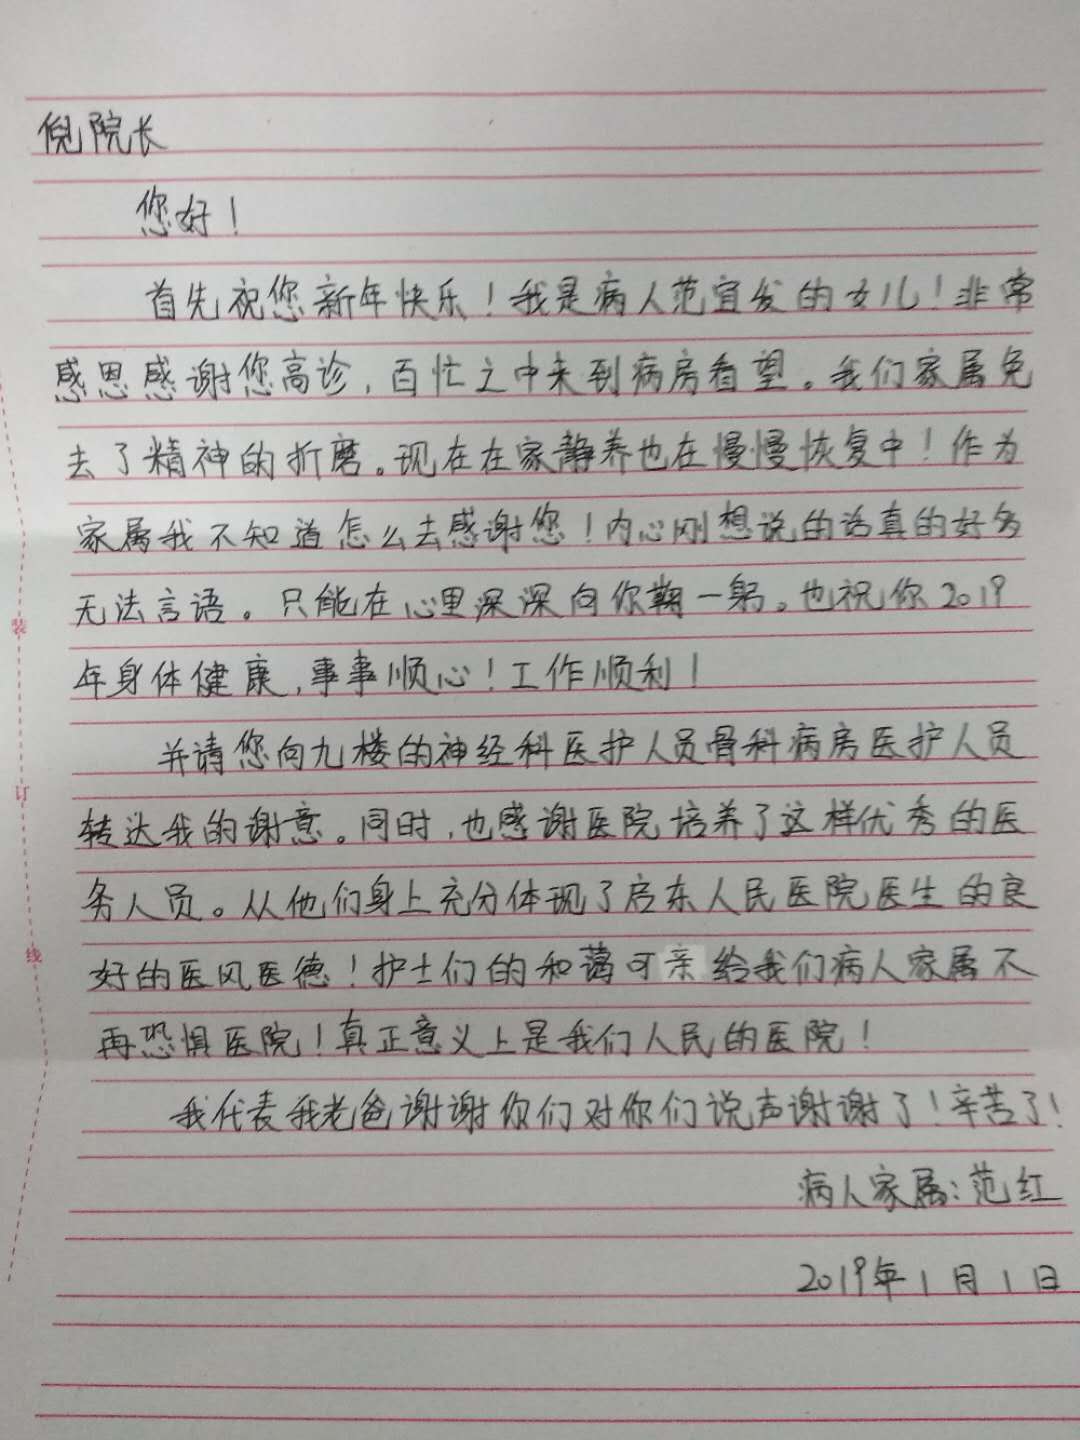 倪院长
您好！
首先祝您新年快乐！我是病人范宜发的女儿！非常
感恩感谢您高诊，百忙之中来到病房看望。我们家属免
去了精神的折磨。现在在家静养也在慢慢恢复中！作为
家属我不知道怎么去感谢您！内心刚想说的话真的好多
无法言语。只能在心里深深向你鞠一躬。也祝你2019
年身体健康，事事顺心！工作顺利！
并请您向九楼的神经科医护人员骨科病房医护人员
转达我的谢意。同时，也感谢医院培养了这样优秀的医
务人员。从他们身上充分体现了启东人民医院医生的良
好的医风医德！护士们的和蔼可亲给我们病人家属不
再恐惧医院！真正意义上是我们人民的医院！
我代表我老爸谢谢你们对你们说声谢谢了！辛苦了！
病人家属：范红
2019年1月1日
装
订
线